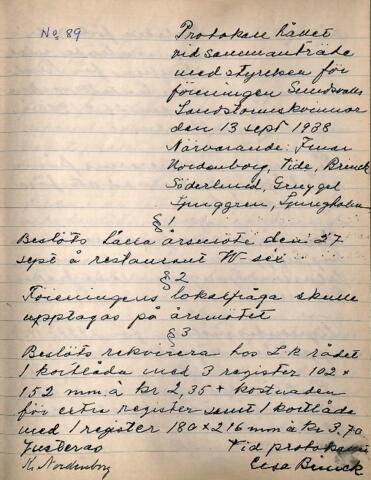 No 89
Protokoll hållet
vid sammanträde
med styrelsen för
föreningen Sundsvalls
Landstormskvinnor
den 13 sept 1938
Närvarande: Fruar
Nordenborg, Tide, Brunck
Söderlund, Gruggel
Ljunggren, Ljungholm
§ 1
Beslöts hålla årsmöte den 27
sept å restaurant W-sex
§ 2
Föreningens lokalfråga skulle
upptagas på årsmötet
§ 3
Beslöts rekvirera hos L.K rådet
1 kortlåda med 3 register 102 ×
152 mm. à kr 2,35 + kostnaden
för extra register samt 1 kortlåda
med 1 register 180 × 216 mm à kr 3,70
Justeras Vid protokollet
M. Nordenborg Elsa Brunck